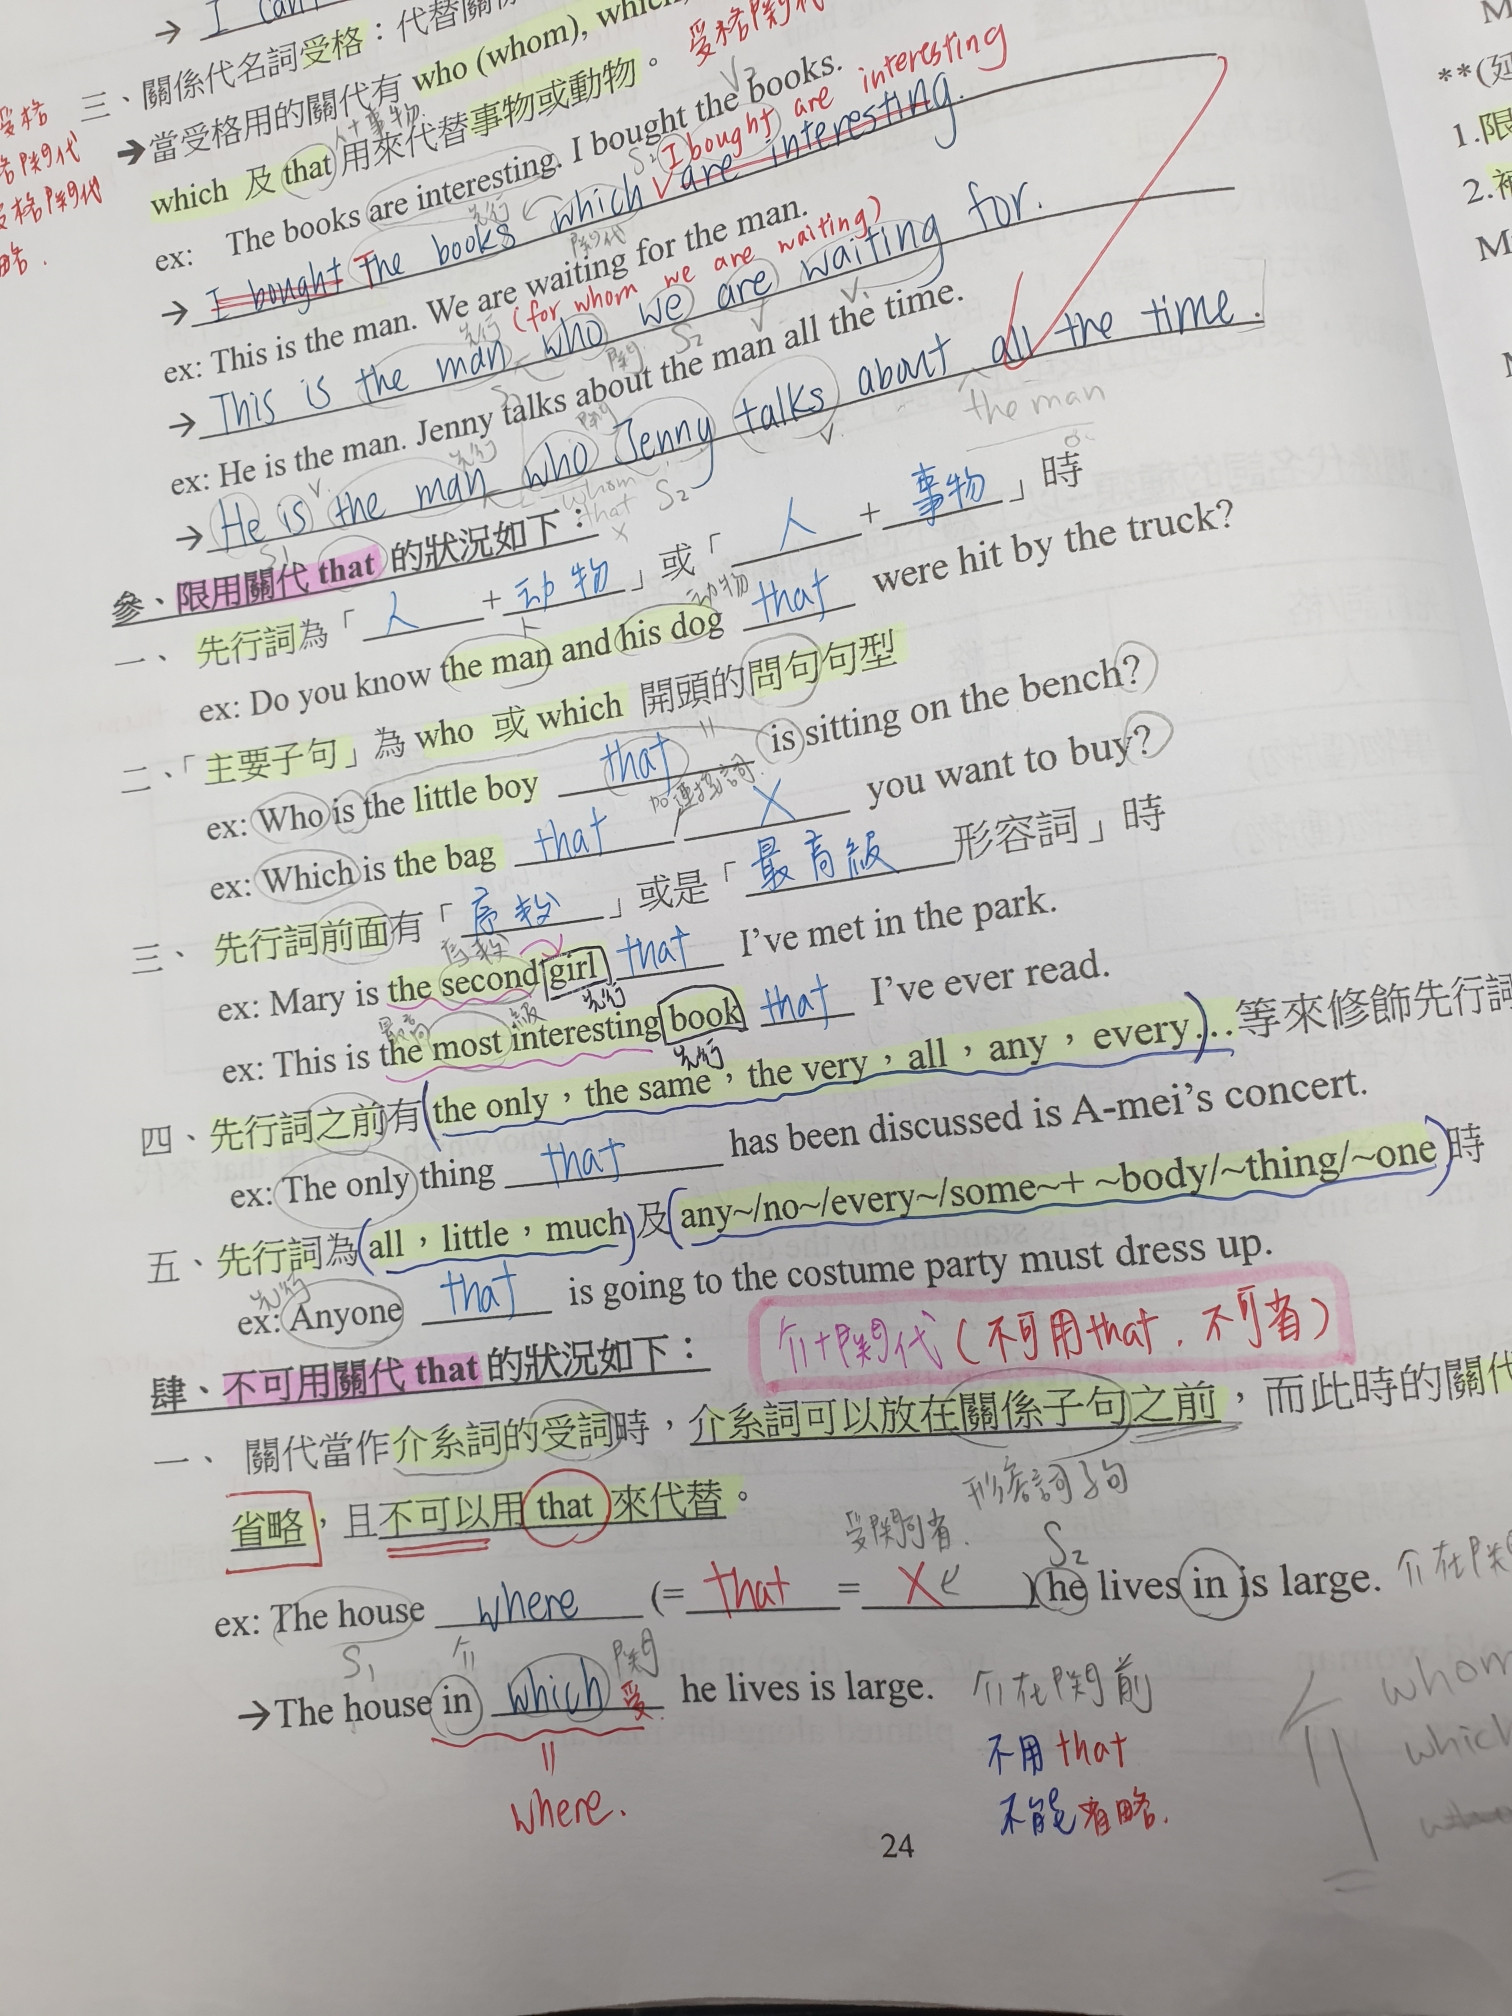 → I can
三、關係代名詞受格：代替關係
受格關代
→當受格用的關代有 who (whom), which,
人+事物
which 及 that 用來代替事物或動物。
ex: The books are interesting. I bought the books.
I bought are interesting
→ I bought The books which are interesting.
先行 關代
ex: This is the man. We are waiting for the man.
(for whom we are waiting)
→ This is the man who we are waiting for.
先行 關 S2 V
ex: He is the man. Jenny talks about the man all the time.
→ He is the man who Jenny talks about all the time.
S1 V 先行 關 S2 V.
whom
that
X
the man
參、限用關代 that 的狀況如下：
一、 先行詞為「人+动物」或「人+事物」時
动物
ex: Do you know the man and his dog that were hit by the truck?
二、「主要子句」為 who 或 which 開頭的問句句型
ex: Who is the little boy that is sitting on the bench?
ex: Which is the bag that / X you want to buy?
三、 先行詞前面有「序數」或是「最高級形容詞」時
序數
ex: Mary is the second girl that I've met in the park.
最高級 先行
ex: This is the most interesting book that I've ever read.
先行
四、先行詞之前有(the only，the same，the very，all，any，every)…等來修飾先行詞
ex: The only thing that has been discussed is A-mei's concert.
五、先行詞為(all，little，much)及(any~/no~/every~/some~+ ~body/~thing/~one)時
先行
ex: Anyone that is going to the costume party must dress up.
肆、不可用關代 that 的狀況如下：
介+關代(不可用that，不可省)
一、 關代當作介系詞的受詞時，介系詞可以放在關係子句之前，而此時的關代
形容詞子句
省略，且不可以用 that 來代替。
受關可省.
S2
ex: The house where (= that = X ) he lives in is large. 介在關
S1 介 關
→The house in which 受 he lives is large. 介在關前
= where.
不用 that
不能省略.
whom
which
24
**(延
1.限
2.